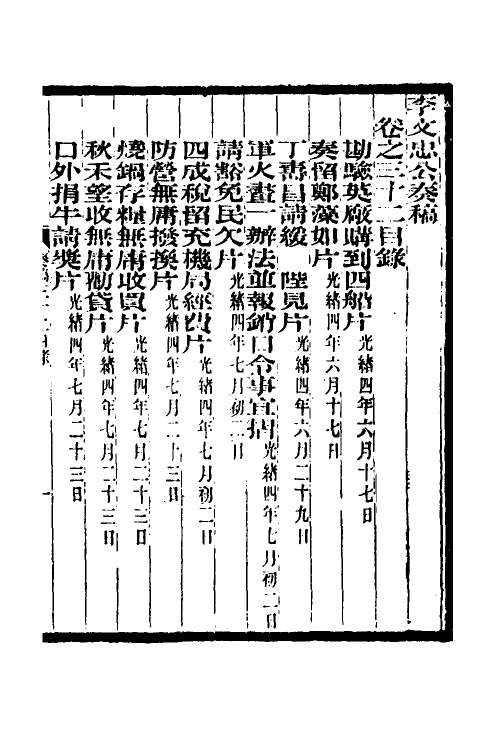 李文忠公奏稿
卷之三十二目錄
勘驗英廠購到四船片光緒四年六月十七日
奏留鄭藻如片光緒四年六月十七日
丁壽昌請緩 陛見片光緒四年六月二十九日
軍火畫一辦法並報銷口令事宜摺光緒四年七月初二日
請豁免民欠片光緒四年七月初二日
四成稅留充機局經費片光緒四年七月初二日
防營無庸撥換片光緒四年七月二十三日
燒鍋存糧無庸收買片光緒四年七月二十三日
秋禾望收無庸勸貸片光緒四年七月二十三日
口外捐牛請獎片光緒四年七月二十三日